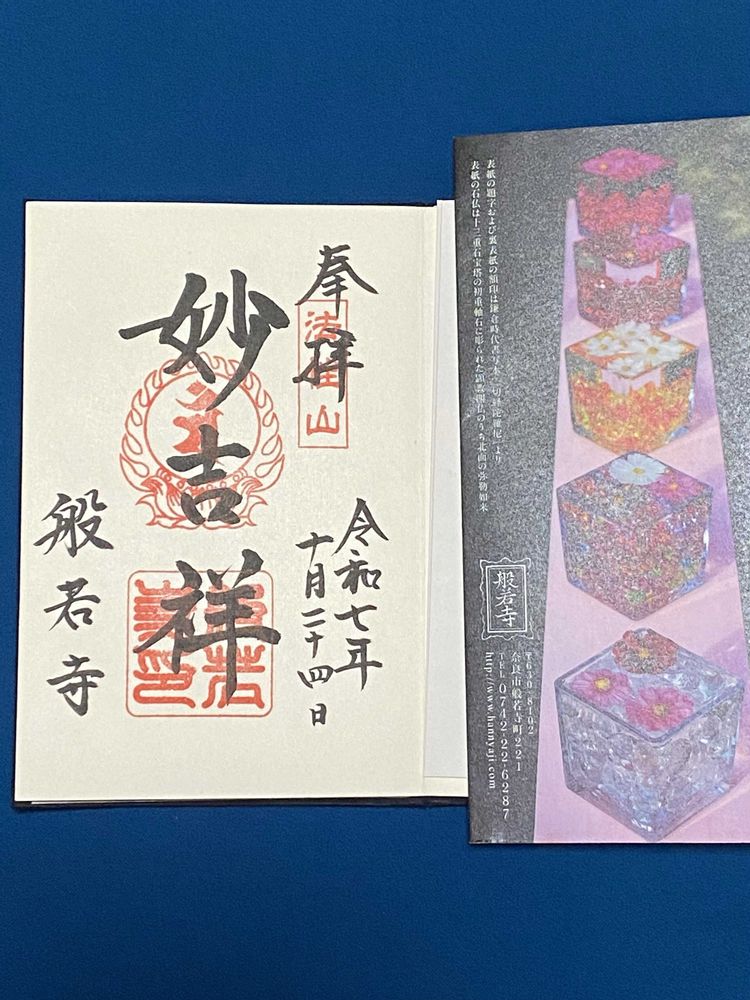 奉拝
法性山
令和七年
十月二十四日
妙吉祥
般若寺
表紙の題字および裏表紙の額印は鎌倉時代書写本「一切経陀羅尼」より
表紙の石仏は十三重石宝塔の初重軸石に彫られた顕教四仏のうち北面の弥勒如来
般若寺
〒630-8102
奈良市般若寺町221
TEL 0742-22-6287
http://www.hannyaji.com